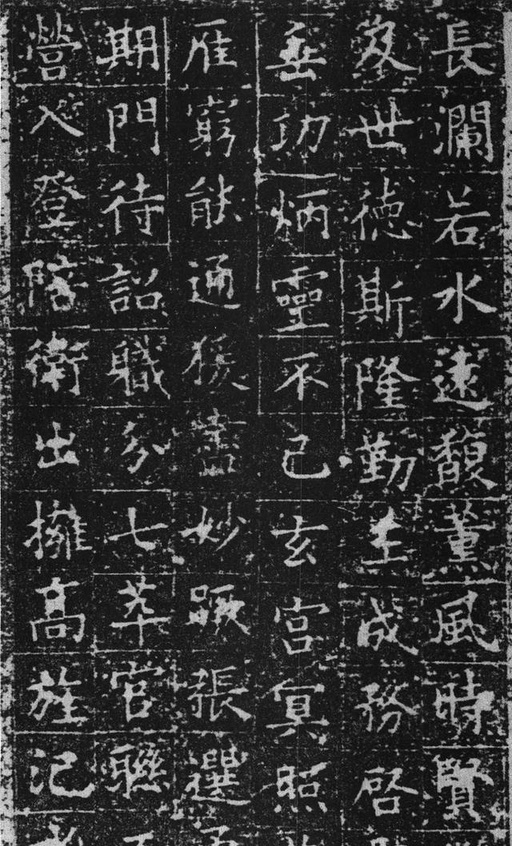 長瀾若水遠馥薰風時賢
及世德斯隆勤王成務啓
垂功炳靈不已玄宮冥照
雁窮能通猨盡妙蹶張選
期門待詔職參七萃官聯
營入登陪衛出擁高旌氾